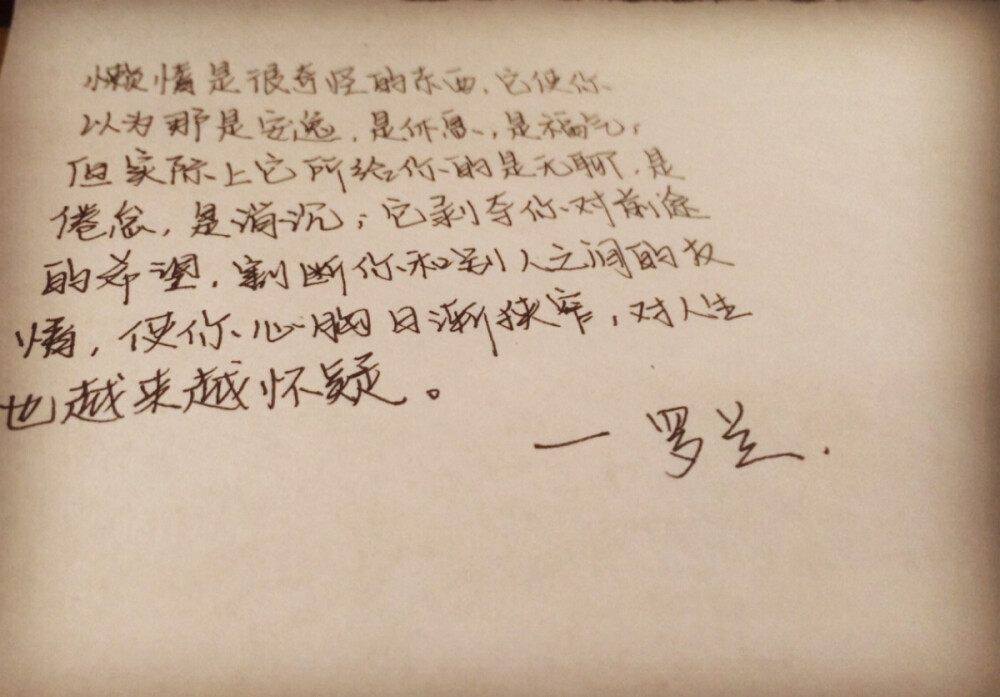 懒惰是很奇怪的东西,它使你
以为那是安逸,是休息,是福气;
但实际上它所给你的是无聊,是
倦怠,是消沉;它剥夺你对前途
的希望,割断你和别人之间的友
情,使你心胸日渐狭窄,对人生
也越来越怀疑。
—罗兰.